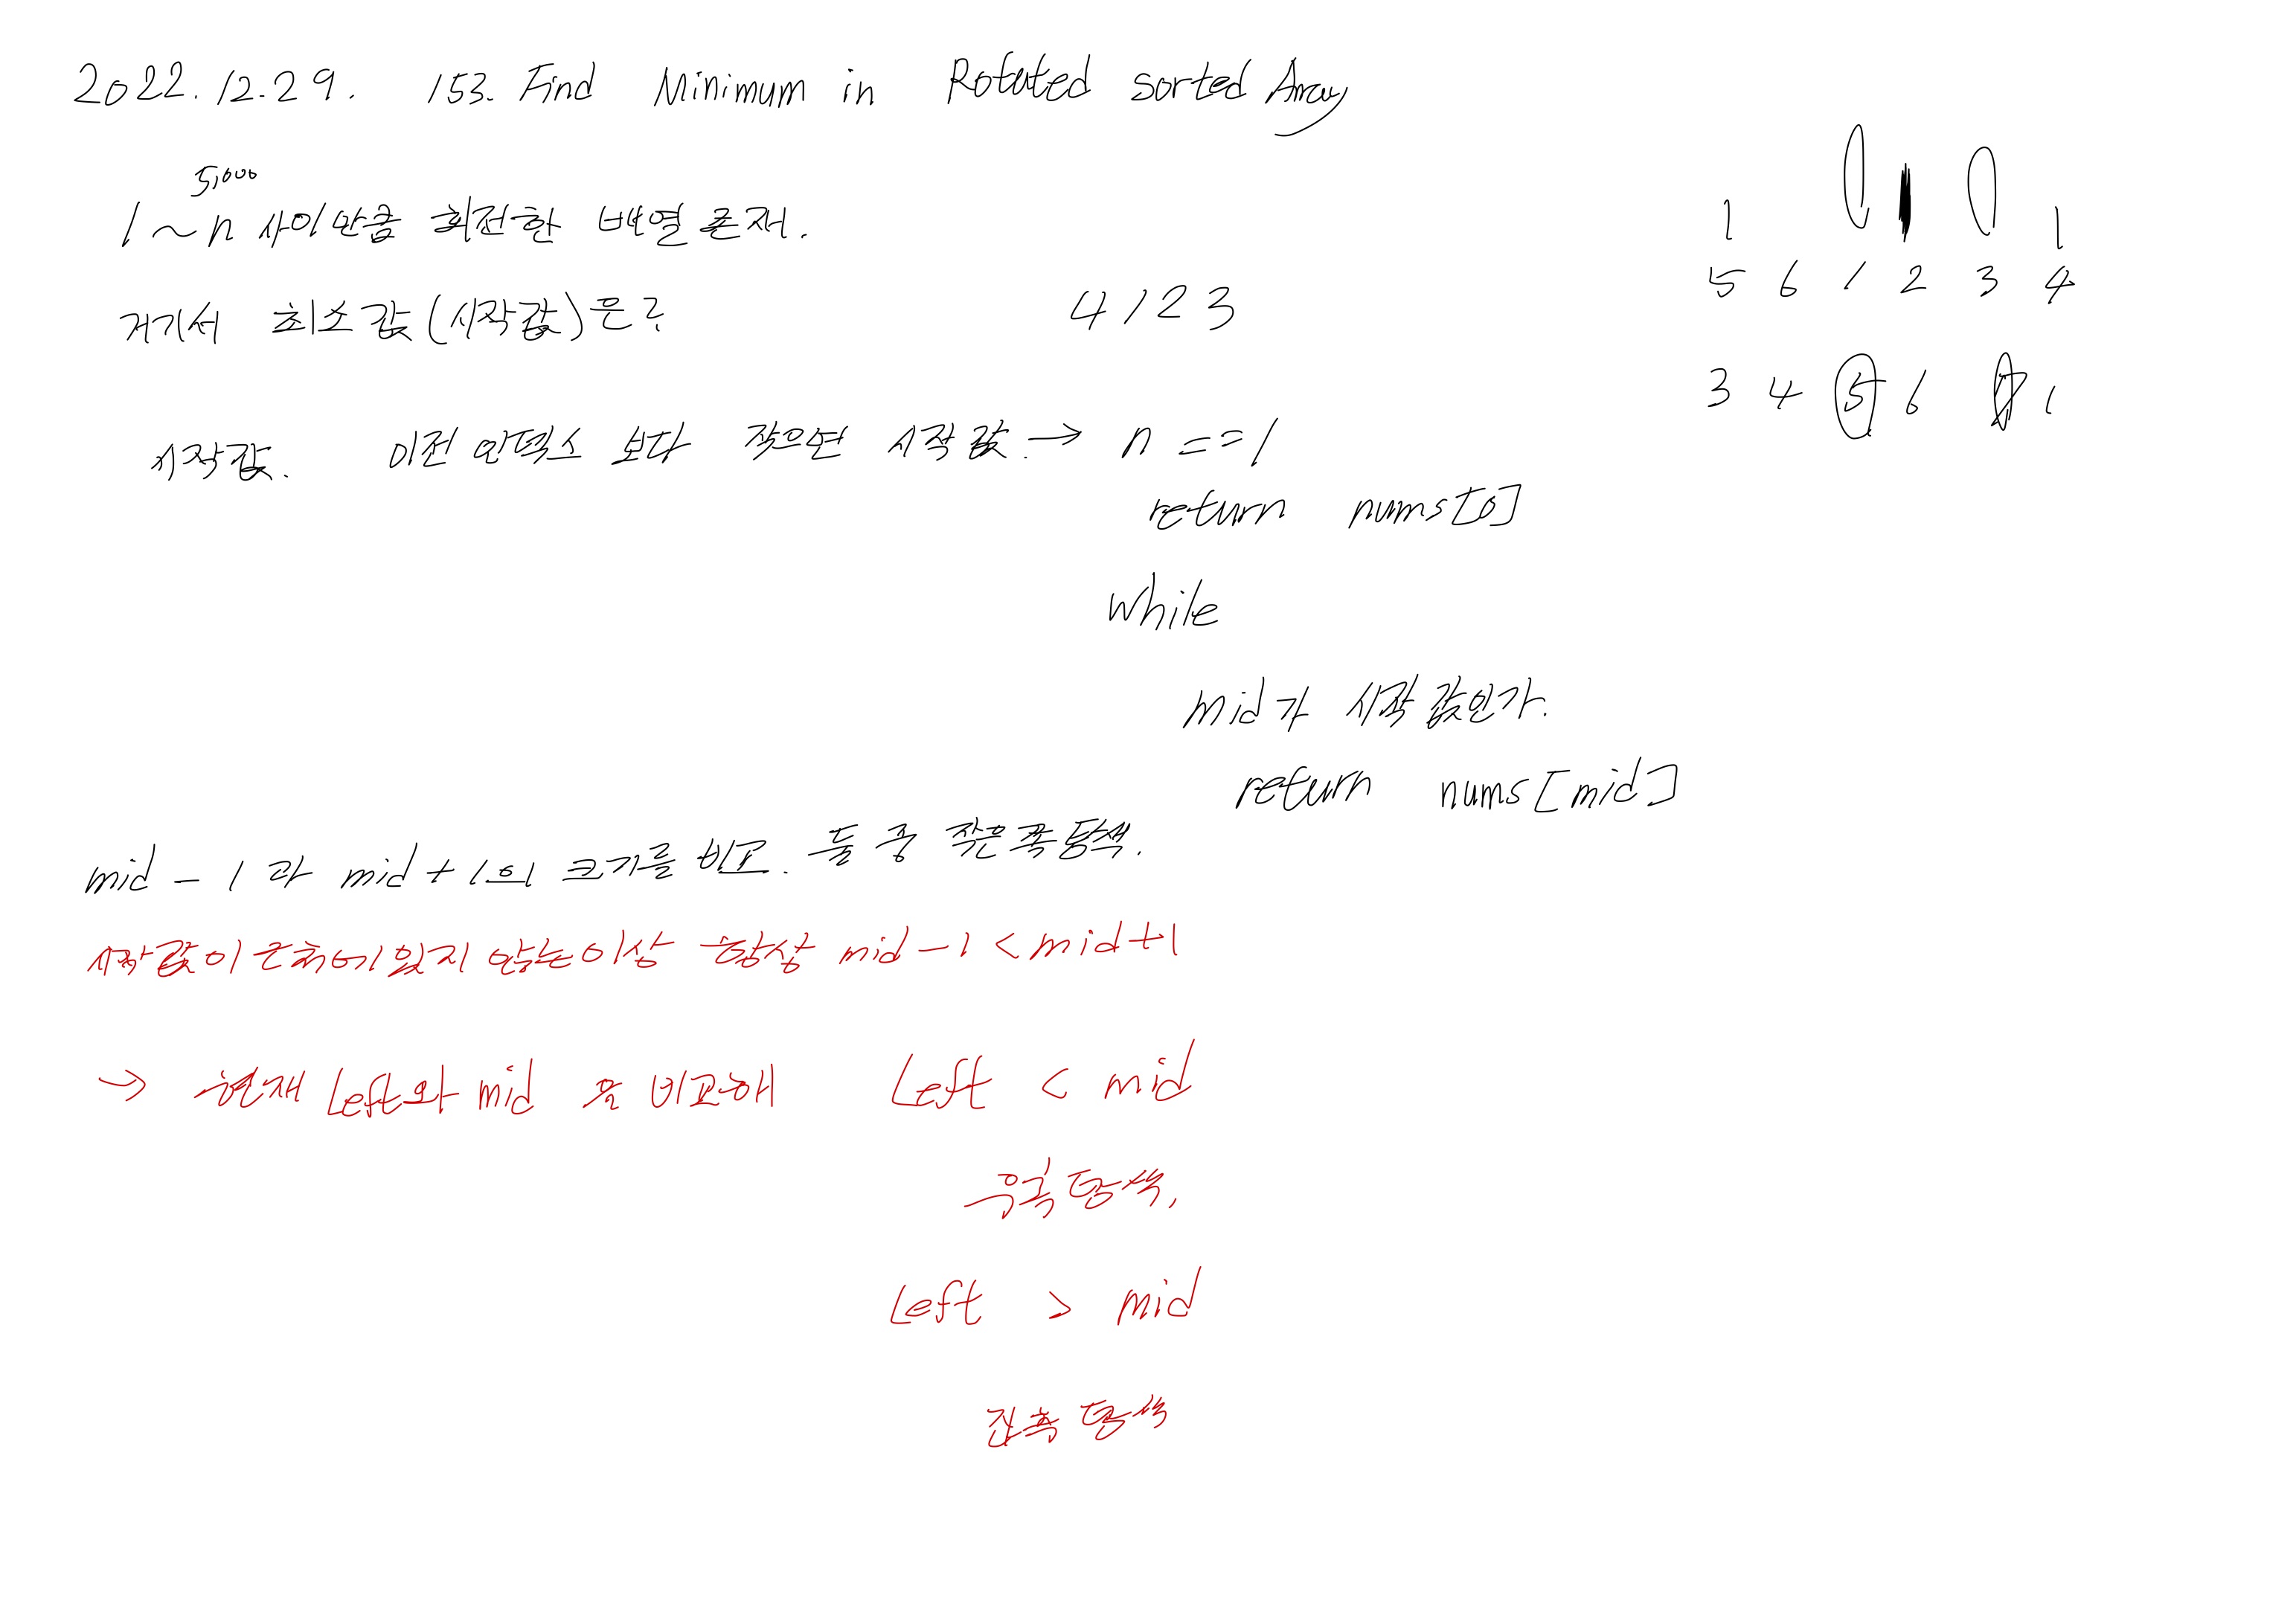 2022.12.29. 153. Find Minimum in Rotated sorted Array
5,000
1~n 사이만큼 회전한 배열 존재.
거기서 최소값(시작값)은?
4 1 2 3
1 1
5 6 1 2 3 4
3 4 5 6 1
시작값. 이전 인덱스 보다 작으면 시작값. → n == 1
return nums[0]
while
mid가 시작 값인가.
return nums[mid]
mid - 1 과 mid + 1의 크기를 비교. 둘 중 작은쪽 탐색.
시작값이 근처에 있지 않는이상 항상 mid - 1 < mid + 1
→ 현재 Left와 mid 을 비교해 Left < mid
우측 탐색.
Left > mid
좌측 탐색